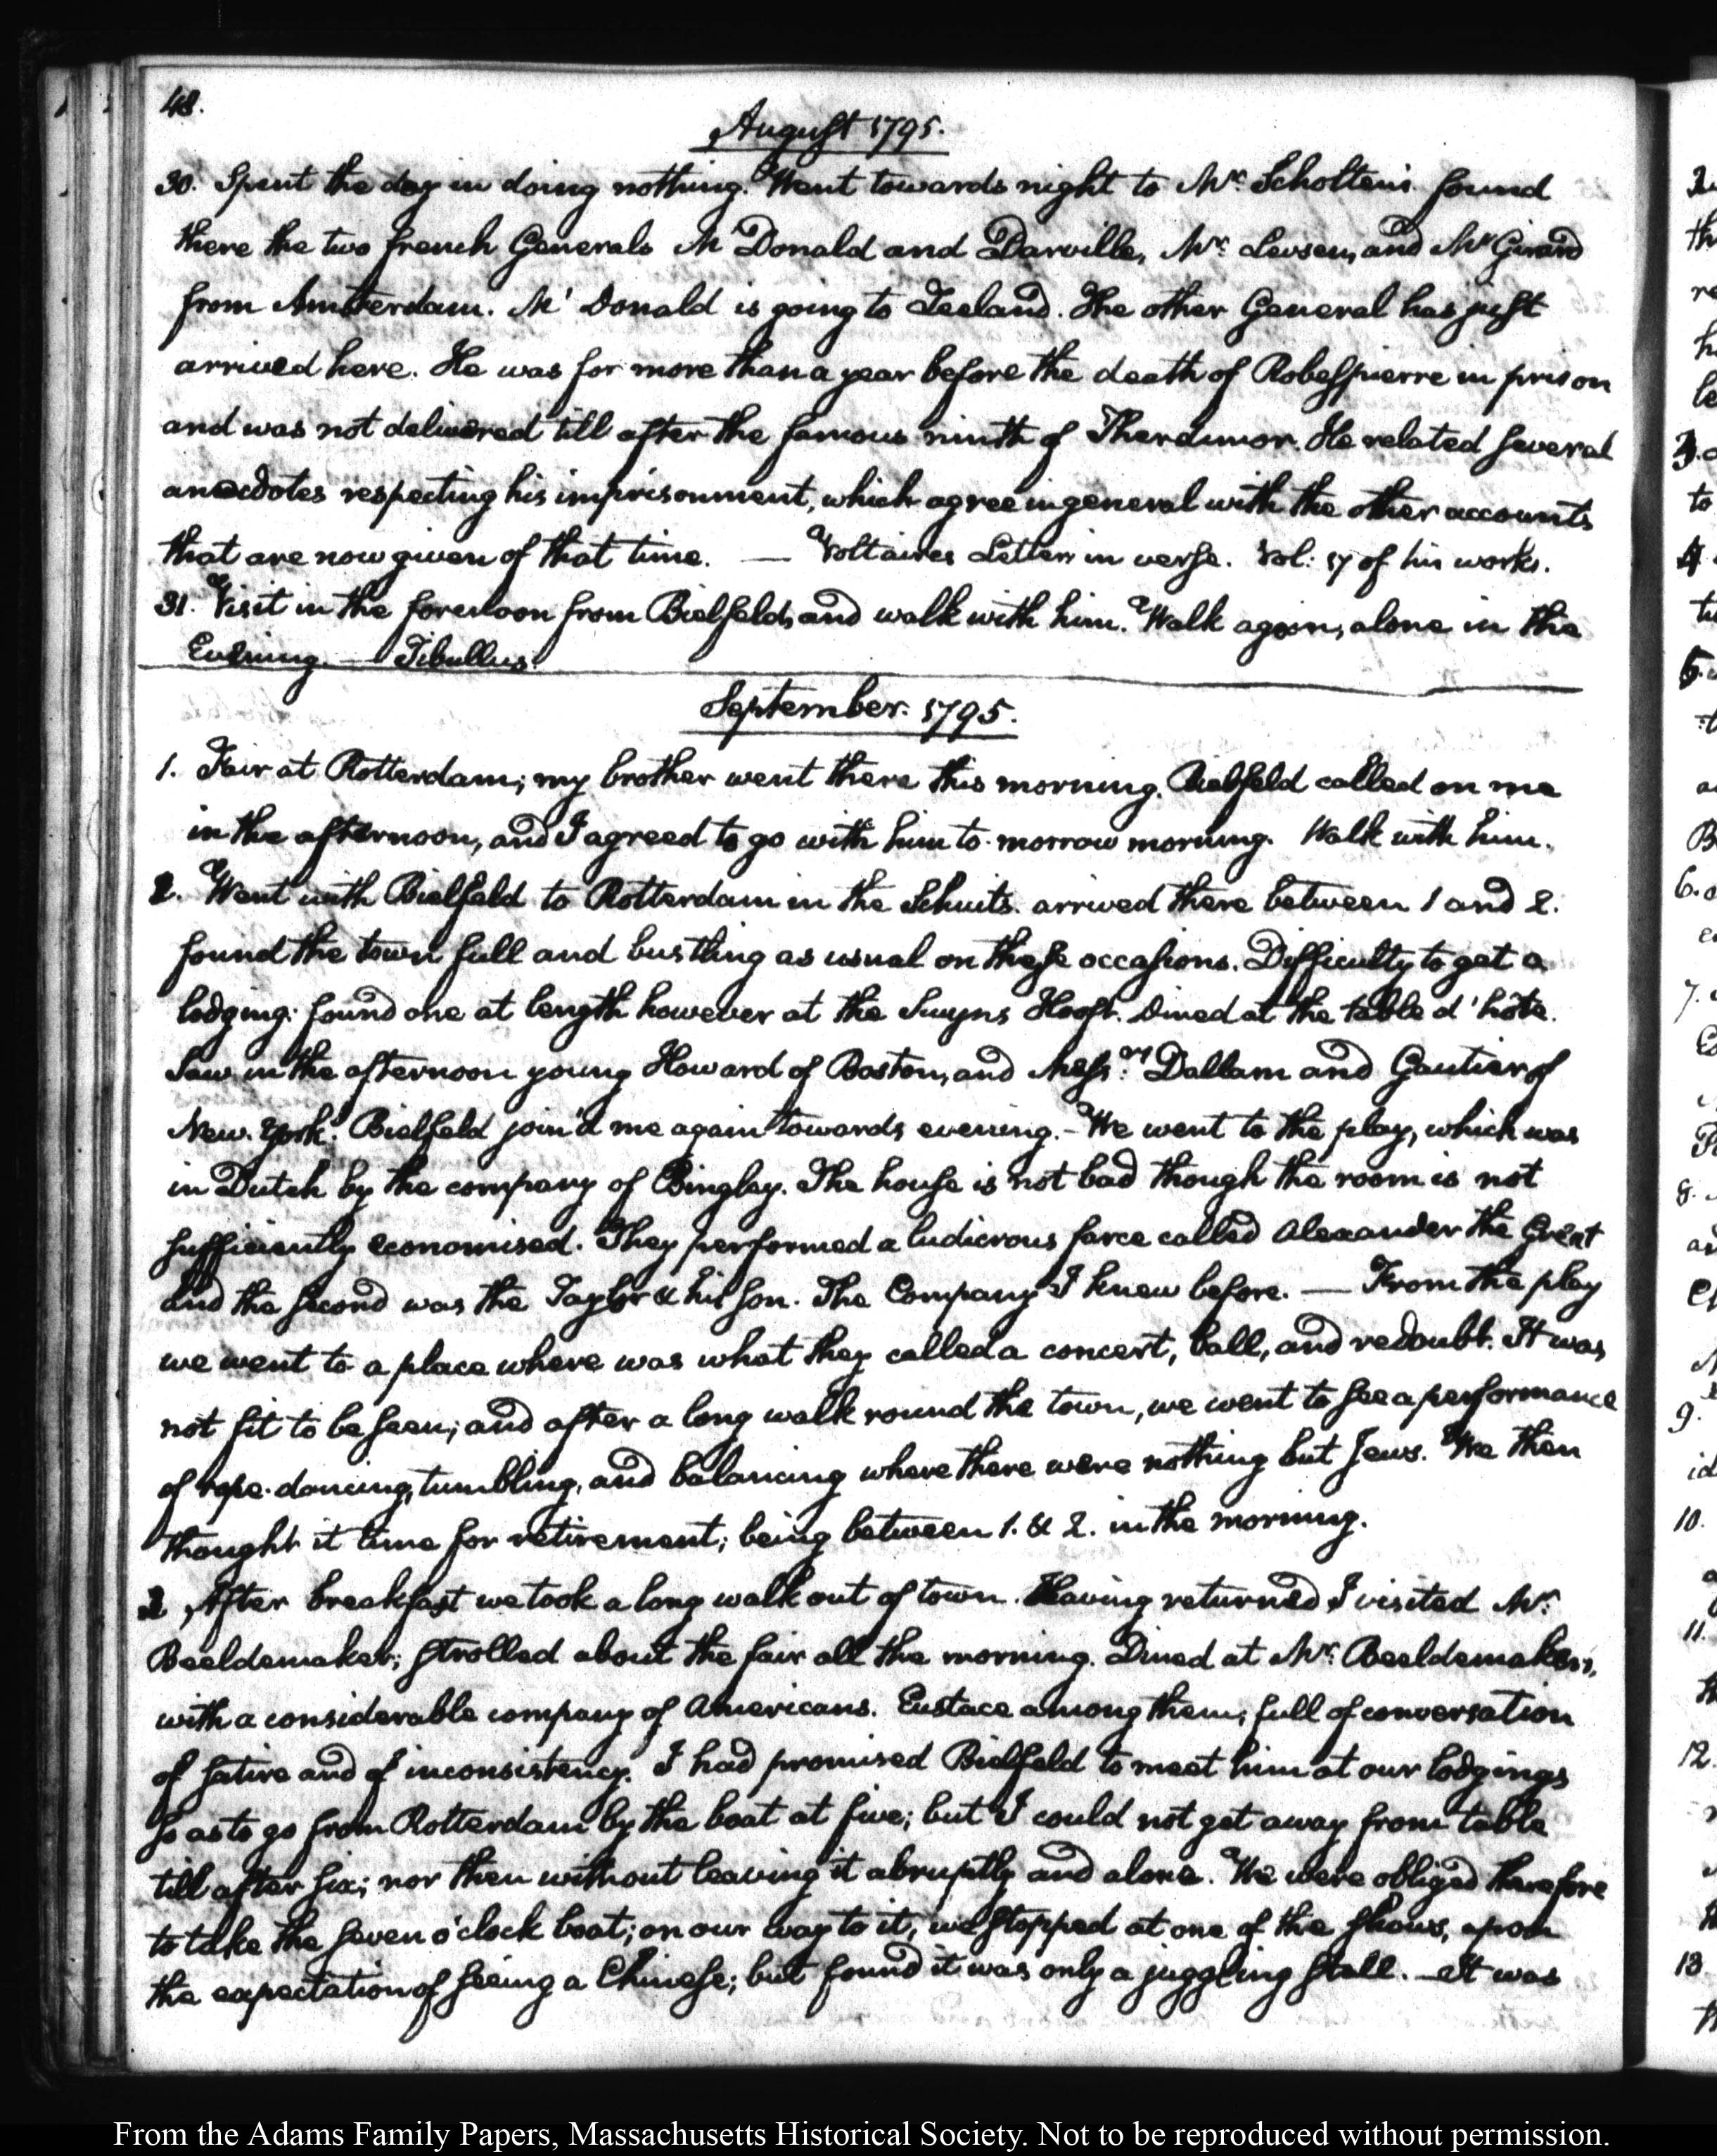 48.
August 1795.
30. Spent the day in doing nothing. Went towards night to Mr: Scholten's found
there the two french Generals M Donald and Darville, Mr: Levsen, and Mr Girard
from Amsterdam. M' Donald is going to Zeeland. The other General has just
arrived here. He was for more than a year before the death of Robespierre in prison
and was not delivered till after the famous ninth of Therdimor. He related several
anecdotes respecting his imprisonment, which agree in general with the other accounts
that are now given of that time. — Voltaires Letters in verse. Vol: 17 of his works.
31. Visit in the forenoon from Bielfeld, and walk with him. Walk again, alone in the
Evening. — Tibullus.
September. 1795.
1. Fair at Rotterdam; my brother went there this morning. Bielfeld called on me
in the afternoon, and I agreed to go with him to-morrow morning. Walk with him.
2. Went with Bielfeld to Rotterdam in the Schuits. arrived there between 1 and 2.
found the town full and bustling as usual on these occasions. Difficulty to get a
lodging: found one at length however at the Swyns Hooft. Dined at the table d'hôte.
Saw in the afternoon young Howard of Boston, and Messrs: Dallam and Gautier of
New-York. Bielfeld join'd me again towards evening. - We went to the play, which was
in Dutch by the company of Bingley. The house is not bad though the room is not
sufficiently economised. They performed a ludicrous farce called Alexander the Great
and the second was the Taylor & his son. The Company I knew before. — From the play
we went to a place where was what they called a concert, ball, and redoubt. It was
not fit to be seen; and after a long walk round the town, we went to see a performance
of rope-dancing, tumbling, and balancing where there were nothing but Jews. We then
thought it time for retirement; being between 1. & 2. in the morning.
3 After breakfast we took a long walk out of town. Having returned I visited Mr:
Beeldemaker; strolled about the fair all the morning. Dined at Mr: Beeldemaker's,
with a considerable company of Americans. Eustace among them; full of conversation
of satire and of inconsistency. I had promised Bielfeld to meet him at our lodgings
so as to go from Rotterdam by the boat at five; but I could not get away from table
till after six; nor then without leaving it abruptly and alone. We were obliged therefore
to take the seven o'clock boat; on our way to it, we stopped at one of the shows, upon
the expectation of seeing a Chinese; but found it was only a juggling stall. — It was
From the Adams Family Papers, Massachusetts Historical Society. Not to be reproduced without permission.